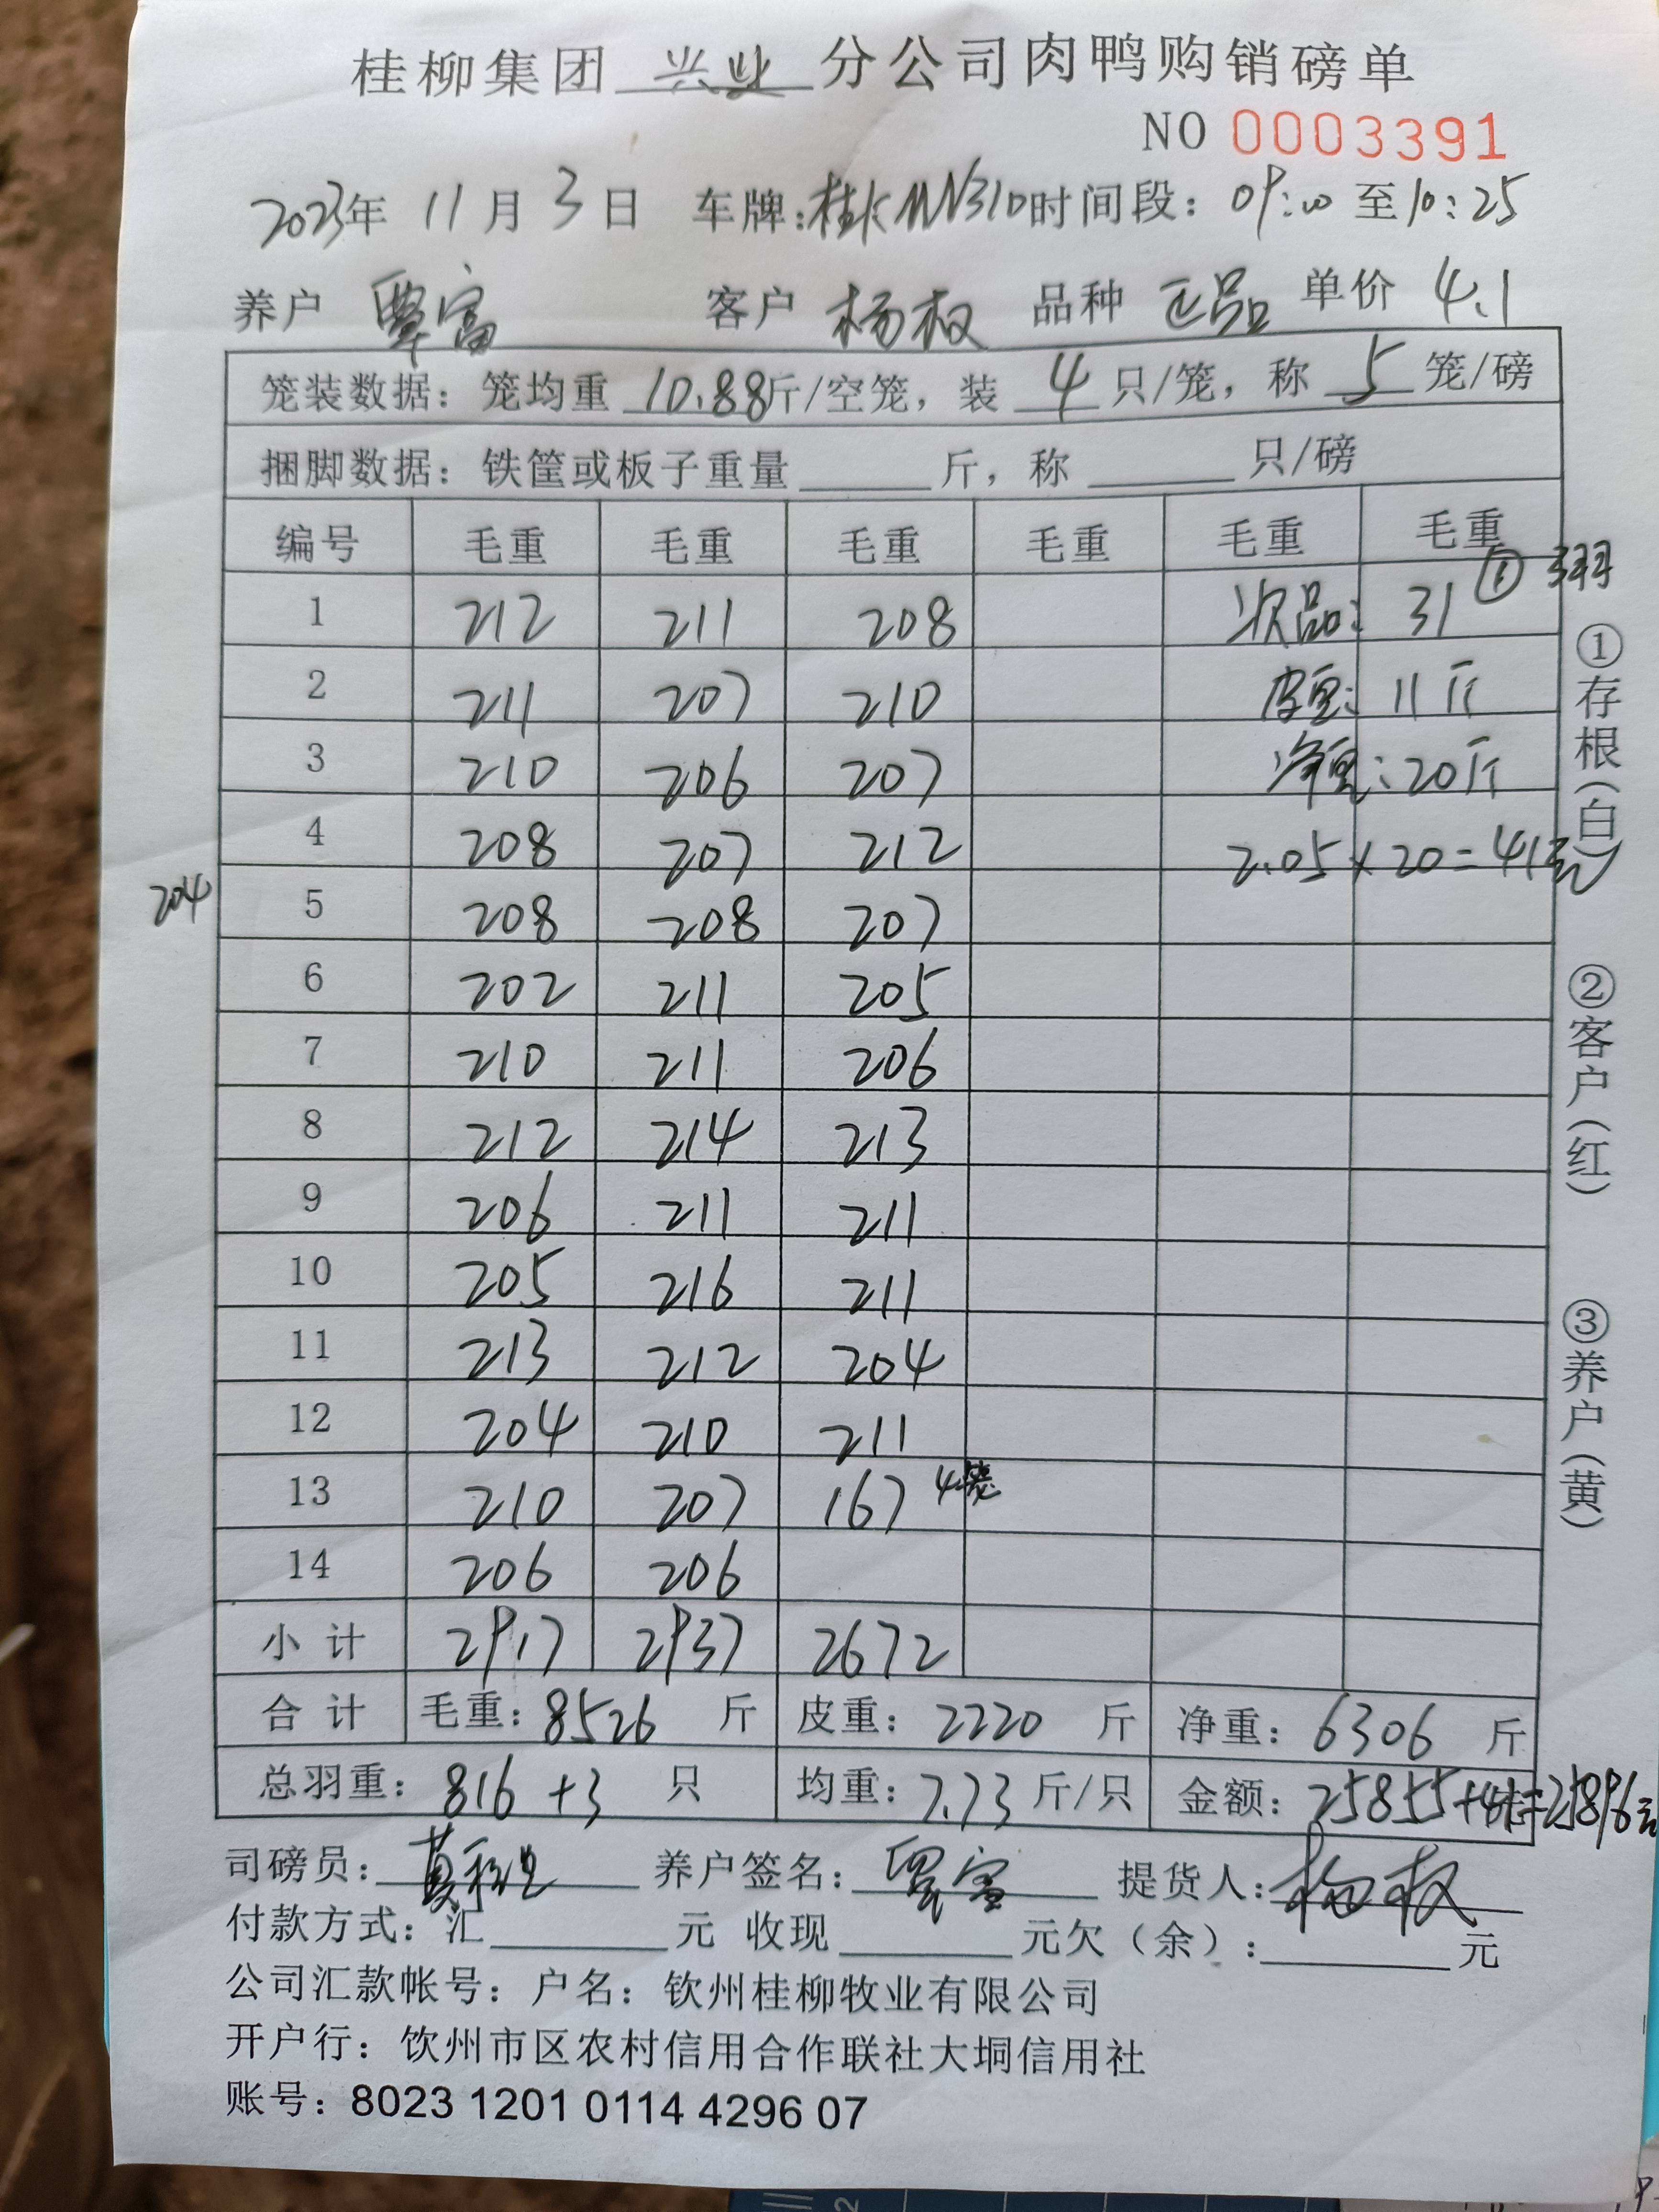 桂柳集团 兴业 分公司肉鸭购销磅单
NO 0003391
2023年 11月 3日 车牌: 时间段: 09:00 至 10:25
养户 覃富 客户 杨权 品种 正品 单价 4.1
笼装数据: 笼均重 10.88斤/空笼, 装 4 只/笼, 称 5 笼/磅
捆脚数据: 铁筐或板子重量 斤, 称 只/磅
编号 毛重 毛重 毛重 毛重 毛重 毛重
1 212 211 208 次品: 31 ① 3羽
2 211 207 210 皮重: 11斤
3 210 206 207 净重: 20斤
4 208 207 212 2.05×20=41元
204 5 208 208 207
6 202 211 205
7 210 211 206
8 212 214 213
9 206 211 211
10 205 216 211
11 213 212 204
12 204 210 211
13 210 207 167 4笼
14 206 206
小计 2917 2937 2672
合计 毛重: 8526 斤 皮重: 2220 斤 净重: 6306 斤
总羽重: 816+3 只 均重: 7.73 斤/只 金额: 25855+41=25896元
司磅员: 养户签名: 覃富 提货人: 杨权
付款方式: 汇 元 收现 元欠(余): 元
公司汇款帐号: 户名: 钦州桂柳牧业有限公司
开户行: 钦州市区农村信用合作联社大垌信用社
账号: 8023 1201 0114 4296 07
①存根(白)
②客户(红)
③养户(黄)